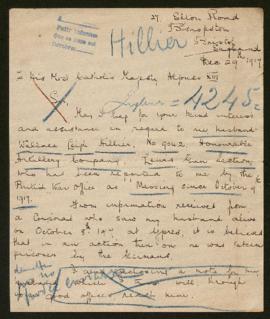 27, Elton Road
Bishopston
Bristol
England
Dec 29th 1917
Hillier
To His Most Catholic Majesty Alfonso XIII
Sir,
4245
May I beg for your kind interest
and assistance in regard to my husband
William Hillier, No 9042, Honourable
Artillery Company, Lewis Gun section,
who has been reported to me by the
British War Office as "Missing since October 9
1917.
From information received from
a Corporal who saw my husband alive
on October 8th 1917, at Ypres, it is believed
that in an action then on he was taken
prisoner by the Germans.
I am enclosing a note for my
husband which I trust will through
your good offices reach him.